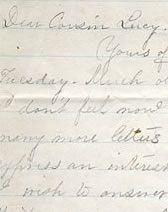 Dear Cousin Lucy.
Yours of
Tuesday. Much
I don't feel now
many more letters
express an interest
I wish to answer